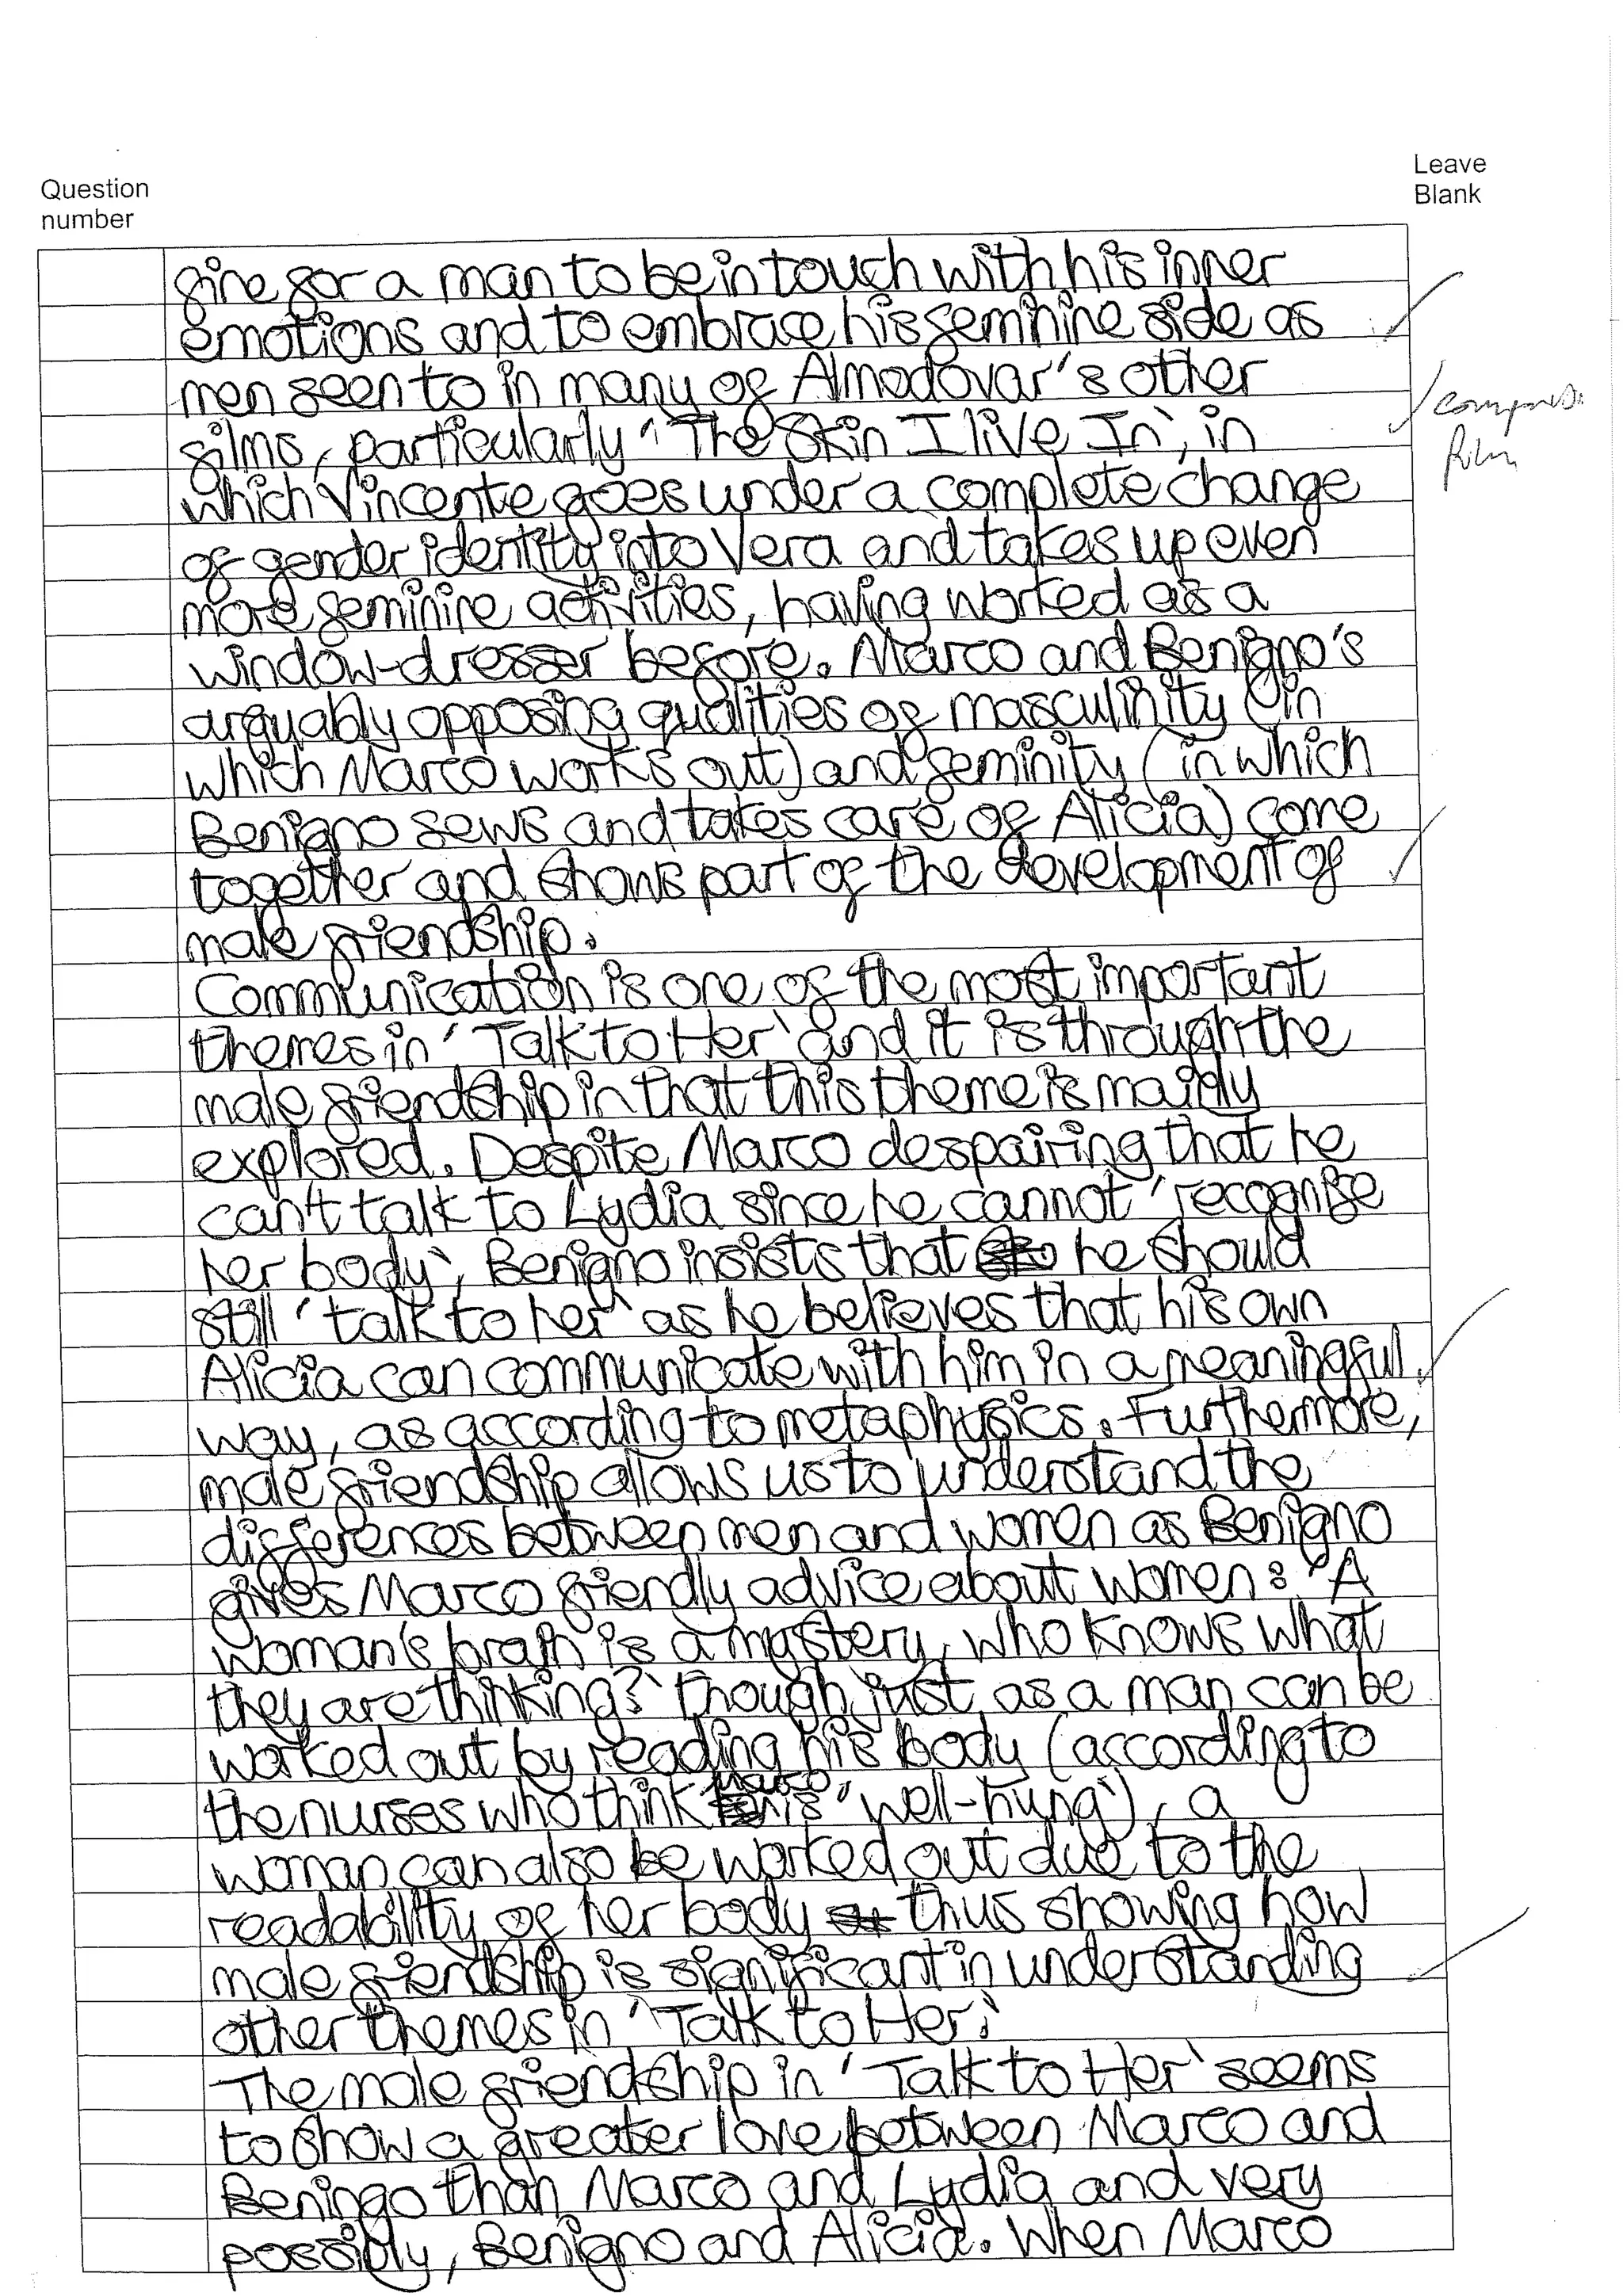 Question
number
Leave
Blank
fine for a man to be in touch with his inner
emotions and to embrace his feminine side as
men seen to in many of Almodóvar's other
films, particularly 'The Skin I live In', in
compres.
film
which Vincente goes under a complete change
of gender identity into Vera and takes up even
more feminine activities, having worked as a
window-dresser before. Marco and Benigno's
arguably opposing qualities of masculinity (in
which Marco works out) and feminity (in which
Benigno sews and takes care of Alicia) come
together and shows part of the development of
male friendship.
Communication is one of the most important
themes in 'Talk to Her' and it is through the
male friendship in that this theme is mainly
explored. Despite Marco despairing that he
can't talk to Lydia since he cannot 'recognise
her body', Benigno insists that he should
still 'talk to her' as he believes that his own
Alicia can communicate with him in a meaningful
way, as according to metaphysics. Furthermore,
male friendship allows us to understand the
differences between men and women as Benigno
gives Marco friendly advice about women: 'A
woman's brain is a mystery, who knows what
they are thinking?' though just as a man can be
worked out by reading his body (according to
the nurses who think Marco is 'well-hung'), a
woman can also be worked out due to the
readability of her body thus showing how
male friendship is significant in understanding
other themes in 'Talk to Her.'
The male friendship in 'Talk to Her' seems
to show a greater love between Marco and
Beningo than Marco and Lydia and very
possibly, Benigno and Alicia. When Marco